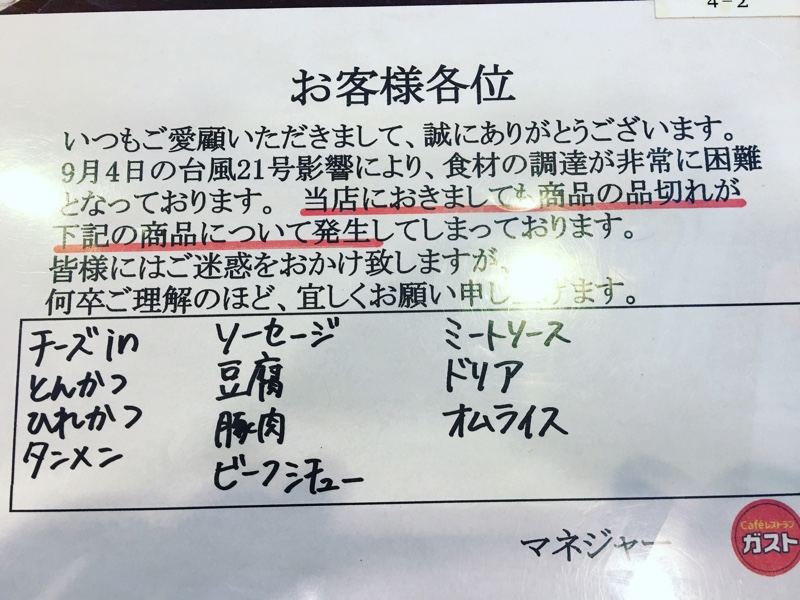 4-2
お客様各位
いつもご愛顧いただきまして、誠にありがとうございます。
9月4日の台風21号影響により、食材の調達が非常に困難
となっております。 当店におきましても商品の品切れが
下記の商品について発生してしまっております。
皆様にはご迷惑をおかけ致しますが、
何卒ご理解のほど、宜しくお願い申し上げます。
チーズin
とんかつ
ひれかつ
タンメン
ソーセージ
豆腐
豚肉
ビーフシチュー
ミートソース
ドリア
オムライス
マネジャー
Caféレストラン
ガスト